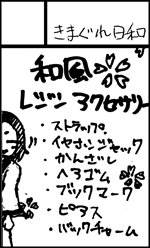 きまぐれ日和
和風
レジン アクセサリー
・ストラップ
・イヤホンジャック
・かんざし
・ヘアゴム
・ブックマーク
・ピアス
・バッグチャーム